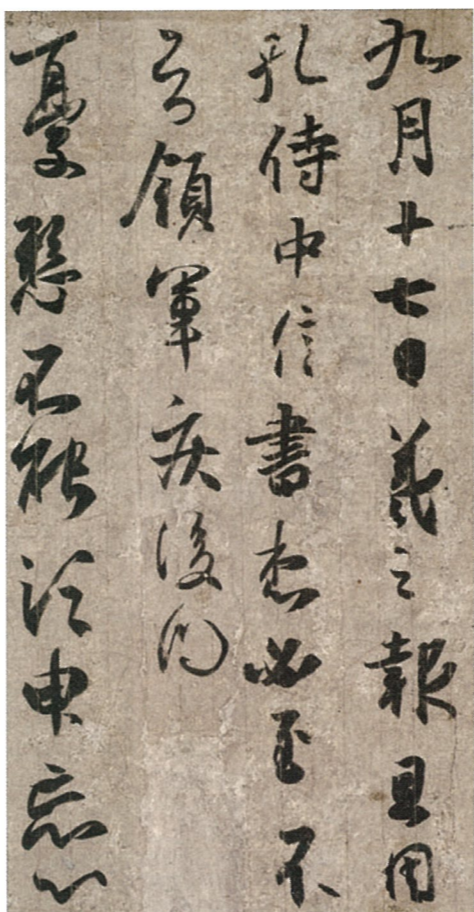 九月十七日羲之報且因
孔侍中信書想必至不
知領軍疾後問
憂懸不能須臾忘心